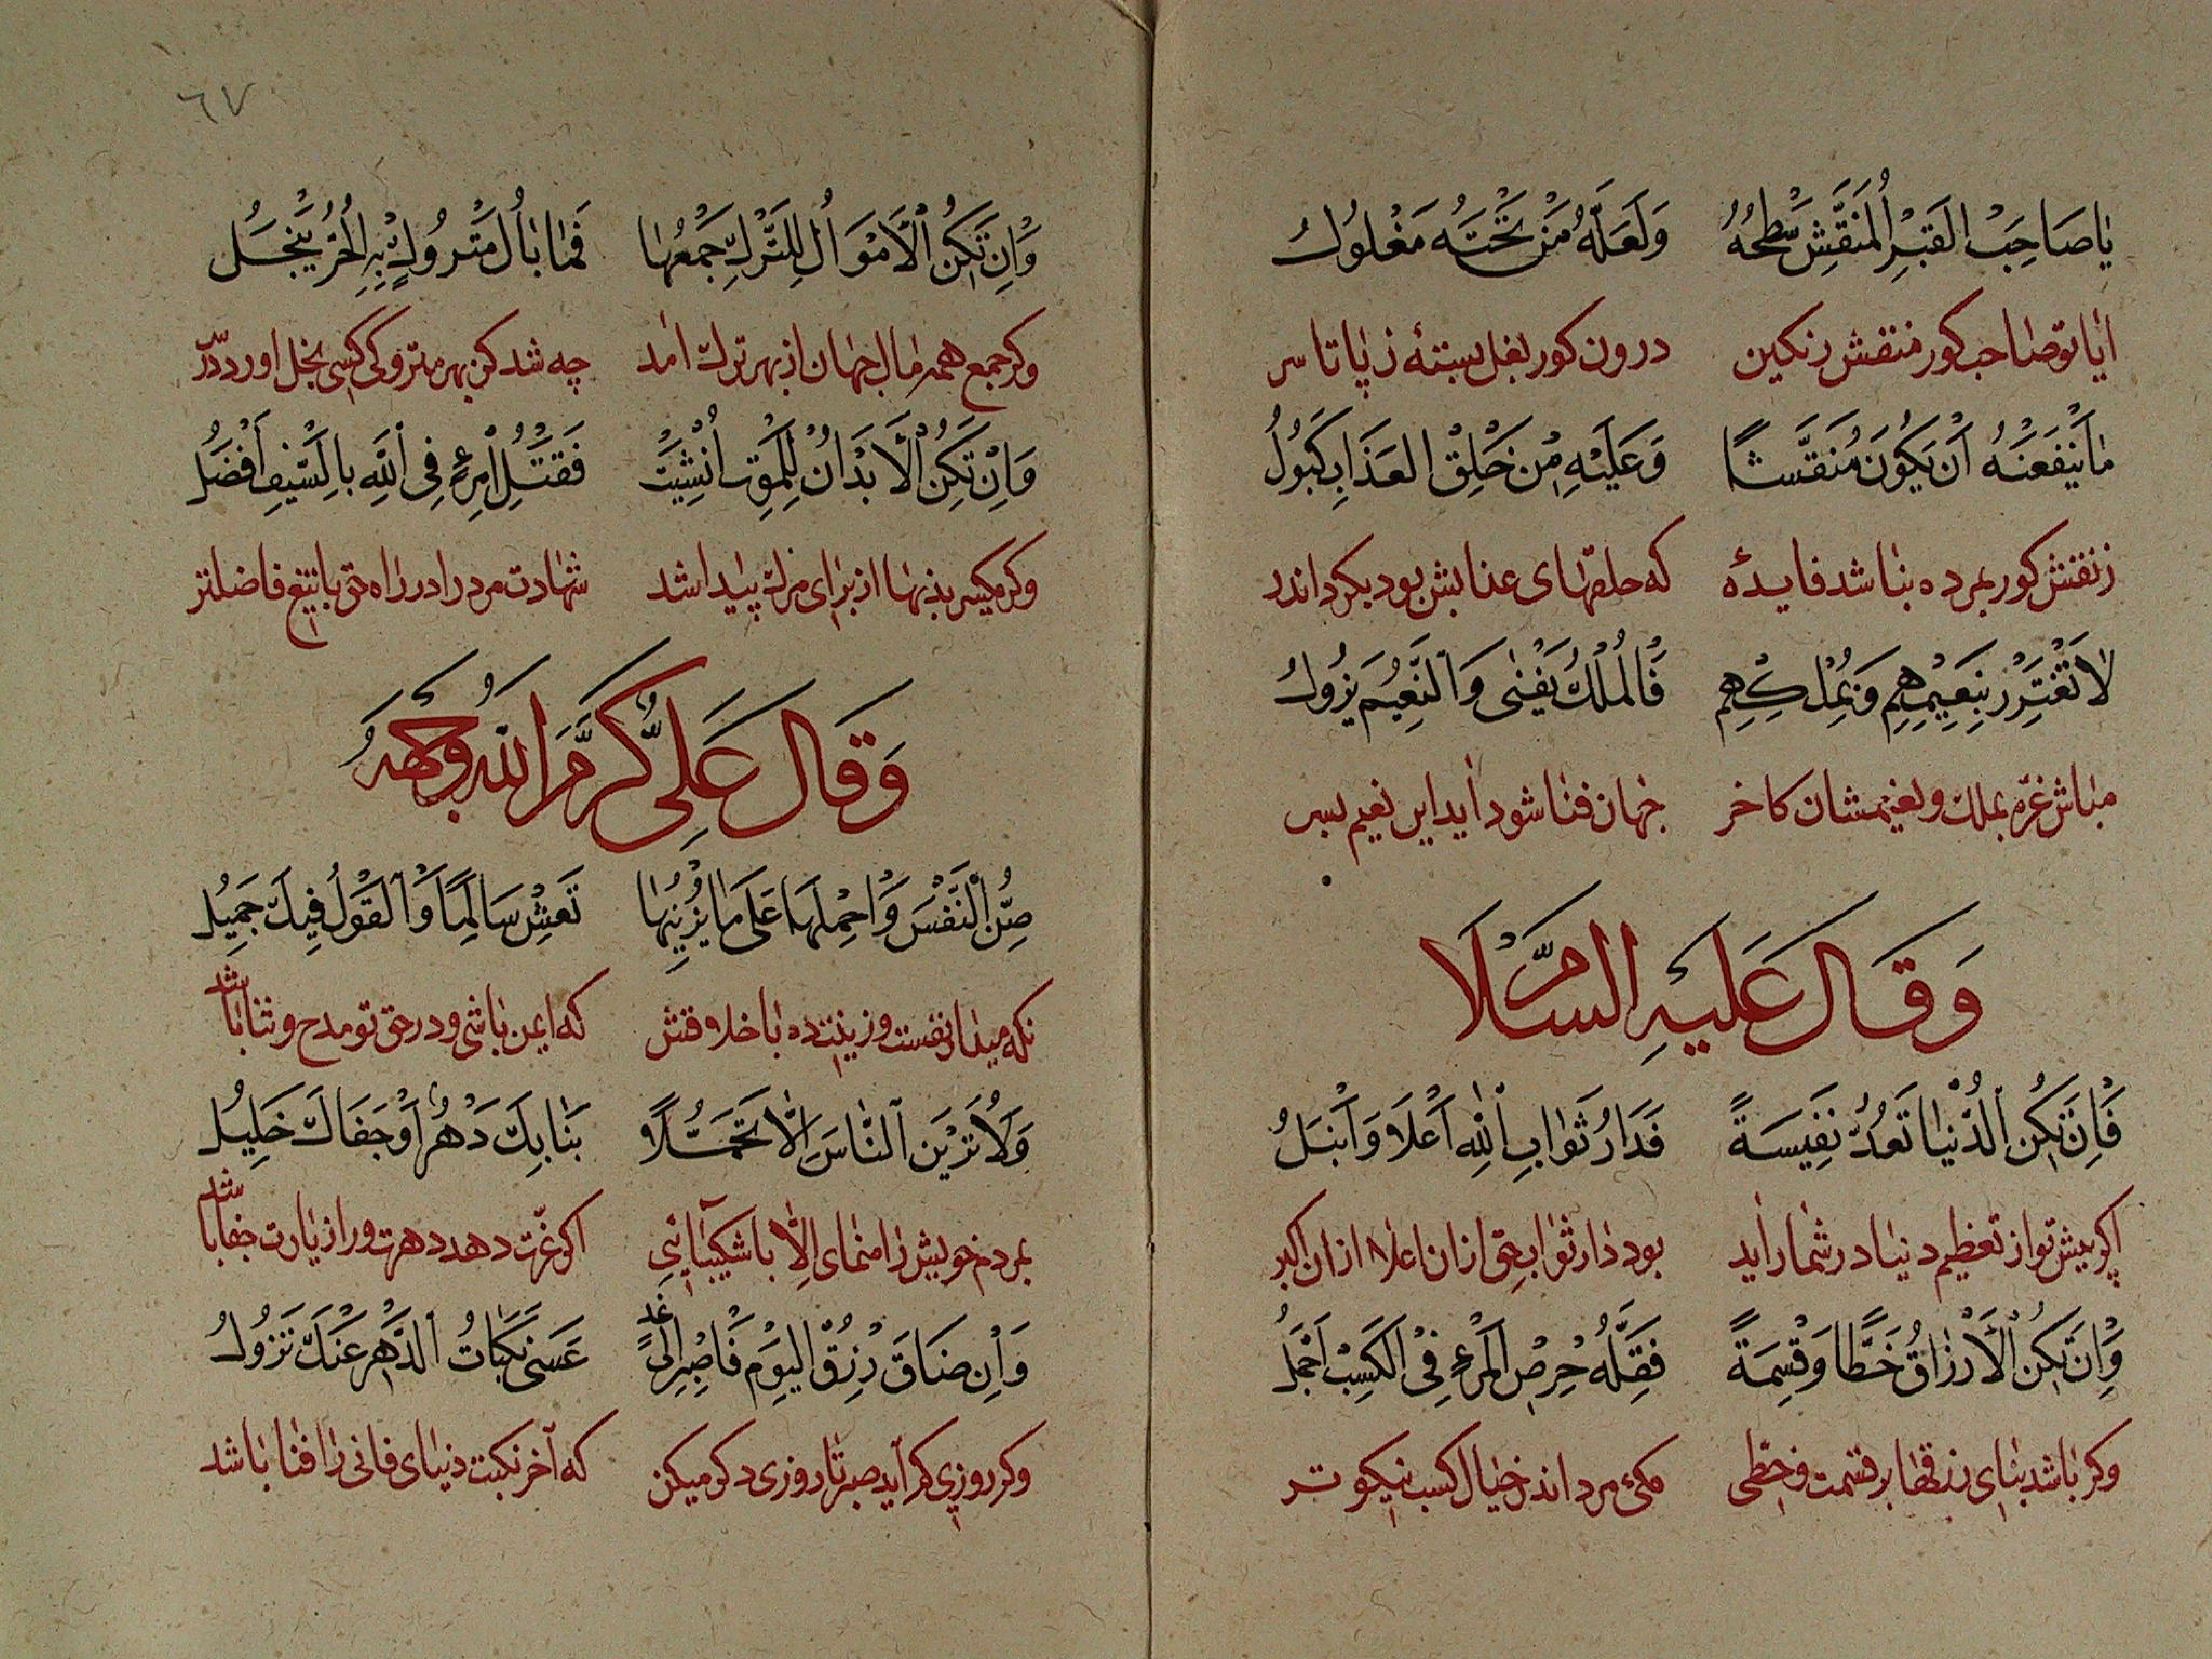 يَا صَاحِبَ القَبْرِ الْمُنَقَّشِ سَطْحُهُ وَلَعَلَّهُ مَنْ تَحْتَهُ مَغْلُولُ
ایا تو صاحب کور منقش رنکین درون کور بغل بسته ز پا تا سر
مَا يَنْفَعَنْهُ اَنْ يَكُونَ مُنَقَّشًا وَعَلَيْهِ مِنْ حَلِقِ العَذَابِ كَبُولُ
ز نقش کور بمرده نباشد فایده که حلقهای عذابش بود بکرد اندر
لَا تَغْتَرِرْ بِنَعِيْمِهِمِ وَبِمُلْكِهِم فَالمُلْكُ يَفْنٰى وَالنَّعِيْمُ يَزُولُ
مباش غرّه بملک و نعیمشان کاخر جهان فنا شود آید این نعیم بسر
وَقَالَ عَلَيْهِ السَّلَامْ
فَاِنْ تَكُنِ الدُّنْيَا تَعُدُّ نَفِيسَةً فَدَارُ ثَوَابِ اللّٰهِ اَعْلَا وَاَنْبَلُ
اکر پیش تو از تعظیم دنیا در شمار آید بود دار ثواب حق ازان اعلا ازان اکبر
وَاِنْ تَكُنِ الْاَرْزَاقُ حَظًّا وَقِسْمَةً فَقِلَّهُ حِرْصِ المَرْءِ فِي الكَسْبِ اَجْمَلُ
وکر باشد بنای رزقها بر قسمت و حظّی کمی مرد اندر خیال کسب نیکوتر
٦٧
وَاِنْ تَكُنِ الْاَمْوَالُ لِلتَّرْكِ جَمْعُهَا فَمَا بَالُ مَتْرُوكٍ بِهِ الْحُرُّ يَبْخَلُ
وکر جمع همه مال جهان از بهر ترک آمد چه شد کز بهر متروکی کسی بخل اورد در
وَاِنْ تَكُنِ الْاَبْدَانُ لِلْمَوْتِ اُنْشِئَتْ فَقَتْلُ امْرِءٍ فِي اللّٰهِ بِالسَّيْفِ اَفْضَلُ
وکر میکسر بدنها از برای مرک پیدا شد شهادت مرد را در راه حق با تیغ فاضلتر
وَقَالَ عَلِيٌّ كَرَّمَ اللهُ وَجْهَهُ
صُنِ النَّفْسَ وَاحْمِلْهَا عَلَى مَا يَزِيْنُهَا تَعِشْ سَالِمًا وَالقَوْلُ فِيكَ جَمِيلُ
نکه میدار نفست و زینت ده با خلاقش که ایمن باشی و در حق تو مدح و ثنا باشد
وَلَا تَرْيَنِ النَّاسَ اِلَّا تَجَمُّلًا بَنَا بِكَ دَهْرٌ اَوْ جَفَاكَ خَلِيلُ
بمردم خویش را منمای الّا با شکیبایی اکر غرّت دهد دهرت ور از یارت جفا باشد
وَاِنْ ضَاقَ رِزْقُ اليَوْمِ فَاصْبِرْ اِلٰى غَدٍ عَسَى نَكَبَاتُ الدَّهْرِ عَنْكَ تَزُولُ
وکر روزی کم آید صبر تا روزی دکر میکن که آخر نکبت دنیای فانی را فنا باشد